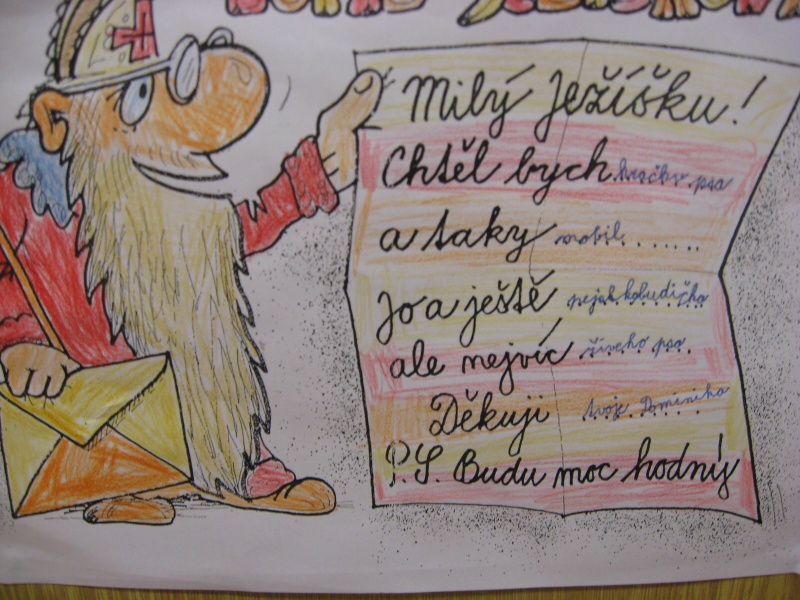 Milý Ježíšku!
Chtěl bych kočku psa
a taky mobil.......
Jo a ještě nějak
ale nejvíc živeho psa.
Děkuji tvoje Dominika
P.S. Budu moc hodný